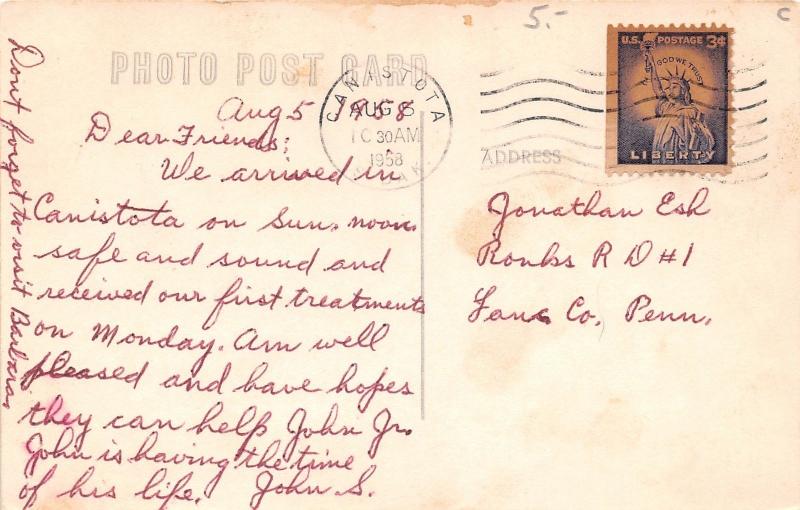 5.-
C
PHOTO POST CARD
CANISTOTA
AUG 5
10 30 AM
1958
S. DAK.
U.S. POSTAGE 3¢
IN GOD WE TRUST
LIBERTY
ADDRESS
Aug 5 1958
Dear Friends;
We arrived in
Canistota on Sun. noon
safe and sound and
received our first treatments
on Monday. Am well
pleased and have hopes
they can help John Jr.
John is having the time
of his life. John S.
Dont forget to visit Barbara.
Jonathan Esh
Ronks R D #1
Lanc Co. Penn.